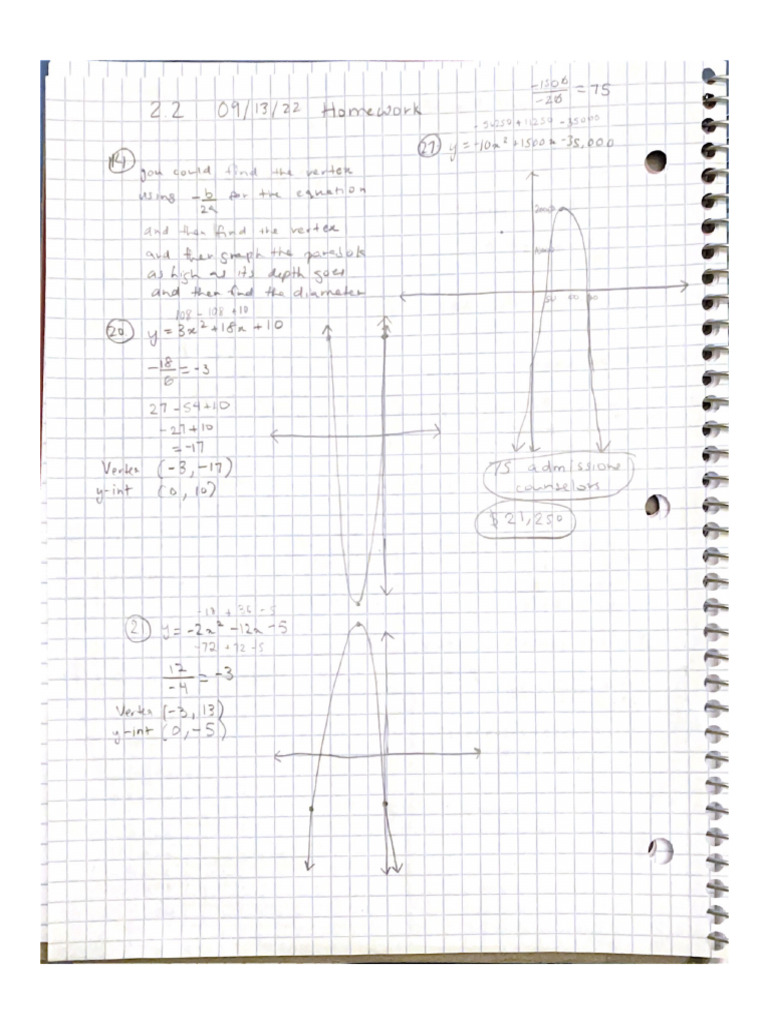 2.2 09/13/22 Homework
14
you could find the vertex
using -b/2a for the equation
and then find the vertex
and then graph the parabola
as high as its depth goes
and then find the diameter
108 - 108 + 10
20 y = 3x² + 18x + 10
-18/6 = -3
27 - 54 + 10
-27 + 10
= -17
Vertex (-3, -17)
y-int (0, 10)
-18 + 36 - 5
21 y = -2x² - 12x - 5
-72 + 72 - 5
12/-4 = -3
Vertex (-3, 13)
y-int (0, -5)
-1500/-20 = 75
-35000
27 y = -10x² + 1500x - 35,000
75 admissions
counselors
$21,250